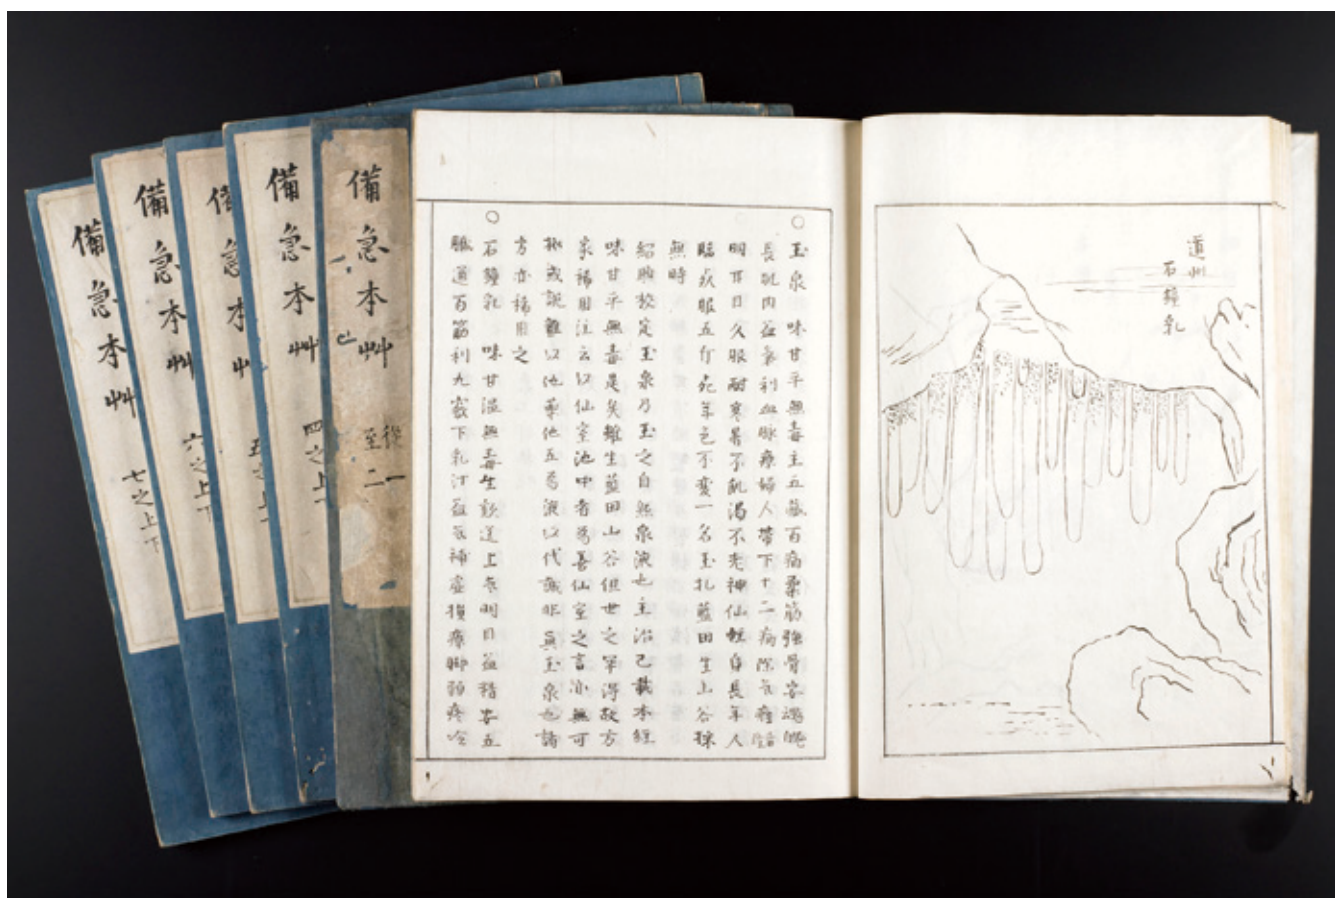 道州
石鐘乳
○玉泉 味甘平無毒主五藏百病柔筋強骨安魂魄
長肌肉益氣利血脉療婦人帶下十二病除氣癃
明耳目久服耐寒暑不飢渴不老神仙輕身長年人
臨死服五斤死年色不變一名玉札藍田生山谷採
無時
紹興校定玉泉乃玉之自然泉液也主治已載本經
味甘平無毒是矣雖生藍田山谷但世之罕得故方
家稀用注云以仙室池中者爲善仙室之言亦無可
或說雖以池藥他五爲液以代誠非真玉泉也諸
方亦稀用之
○石鐘乳 味甘溫無毒主欬逆上氣明目益精安五
臟通百節利九竅下乳汁益氣補虛損療脚弱疼冷
備急本艸 從一
至二
備急本艸 四之上下
備急本艸 五之上下
備急本艸 六之上下
備急本艸 七之上下